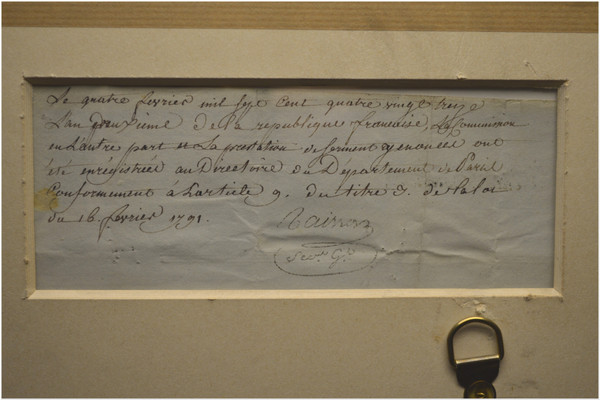 Le quatre fevrier mil sept cent quatre vingt treze
L'an deuxieme de la republique francoise, La Commission
en L'autre part et La prestation de serment y enoncée ont
été enregistrées au Directoire du Département de Paris
Conformement à L'article 9. du titre 3. de la loi
du 16. fevrier 1791.
Raisson
Secr. Gal.